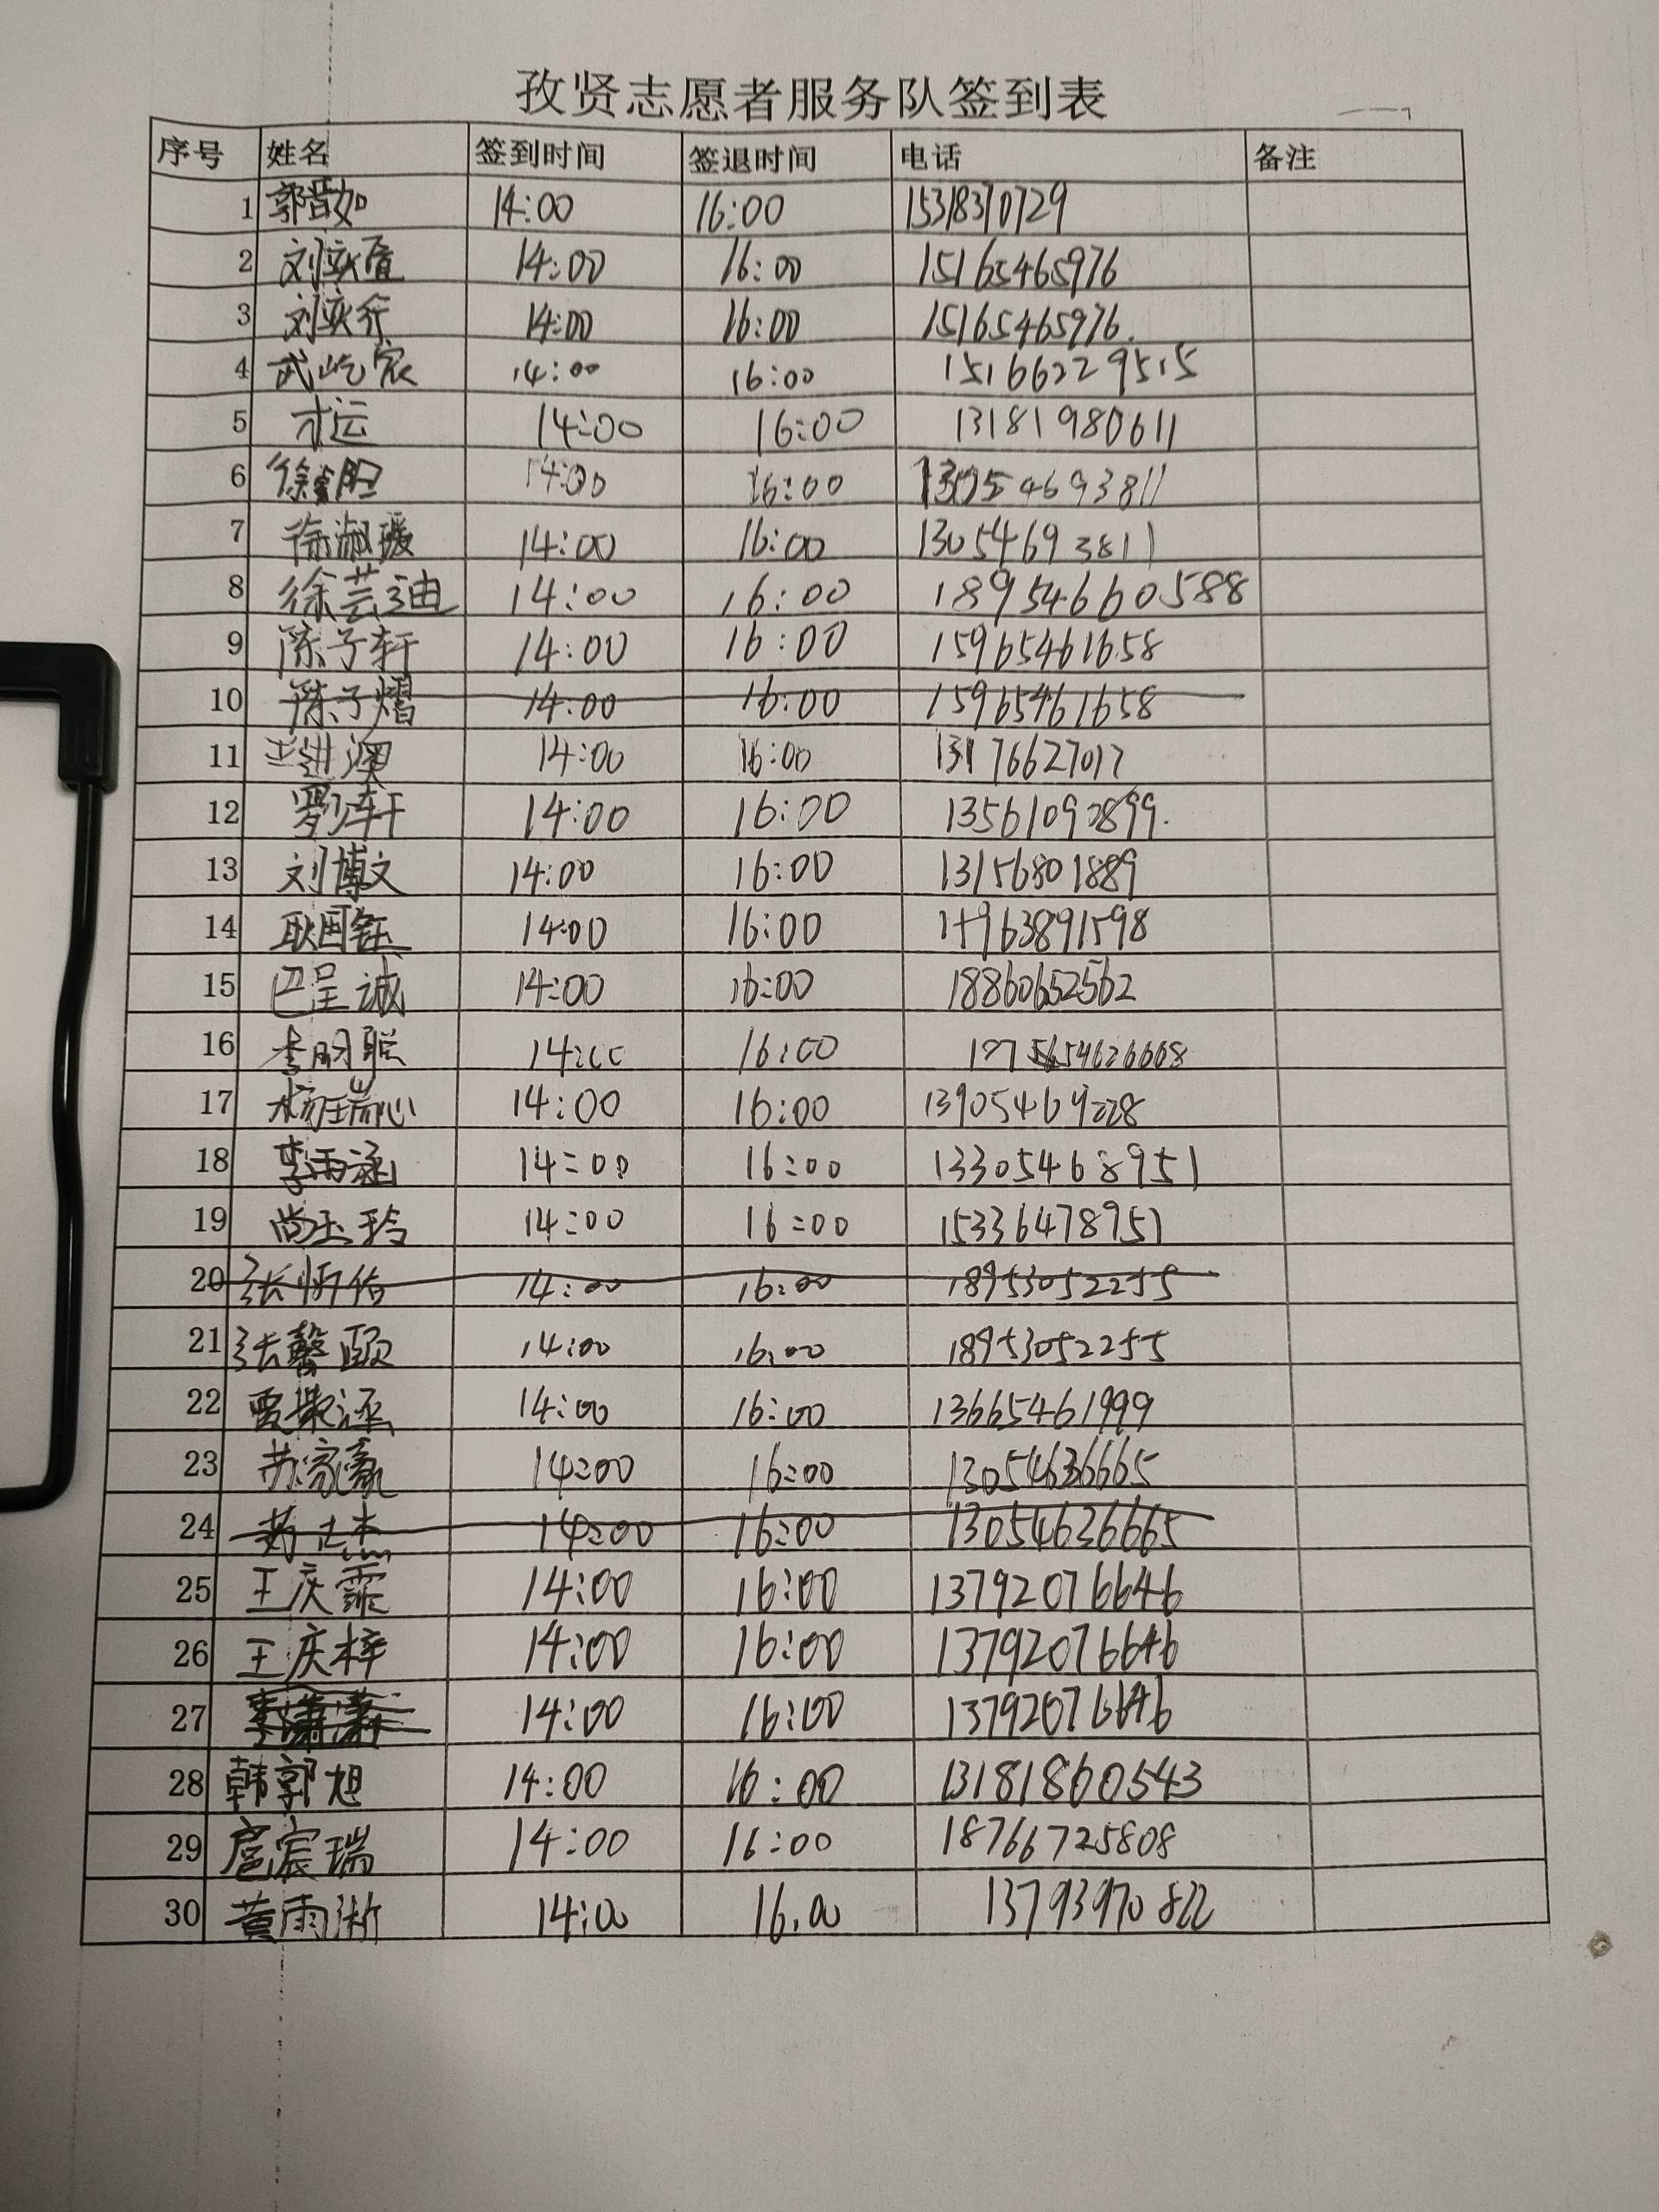 孜贤志愿者服务队签到表
序号 姓名 签到时间 签退时间 电话 备注
1 郭 如 14:00 16:00 15318370729
2 刘 14:00 16:00 15165465976
3 刘奕行 14:00 16:00 15165465976.
4 武屹宸 14:00 16:00 15166229515
5 才运 14:00 16:00 13181980611
6 徐 14:00 16:00 13054693811
7 徐淑瑗 14:00 16:00 13054693811
8 徐芸迪 14:00 16:00 189546660588
9 陈子轩 14:00 16:00 15965461658
10 陈子熠 14:00 16:00 15965461658
11 王进澳 14:00 16:00 13176627017
12 罗 轩 14:00 16:00 13561090899.
13 刘博文 14:00 16:00 13156801889
14 耿画钰 14:00 16:00 963891598
15 巴呈诚 14:00 16:00 18860652562
16 李明聪 14:00 16:00
17 杨瑞心 14:00 16:00 13905469228
18 李雨涵 14:00 16:00 13305468951
19 尚玉玲 14:00 16:00 15336478951
20 张 佑 14:00 16:00 18953052255
21 张馨颐 14:00 16:00 18953052255
22 贾 涵 14:00 16:00 13665461999
23 苏家豪 14:00 16:00 13054636665
24 14:00 16:00 13054636665
25 王庆霏 14:00 16:00 13792076646
26 王庆梓 14:00 16:00 13792076646
27 李潇潇 14:00 16:00 13792076646
28 韩郭旭 14:00 16:00 13181860543
29 扈宸瑞 14:00 16:00 18766725808
30 黄雨淅 14:00 16:00 13793970822